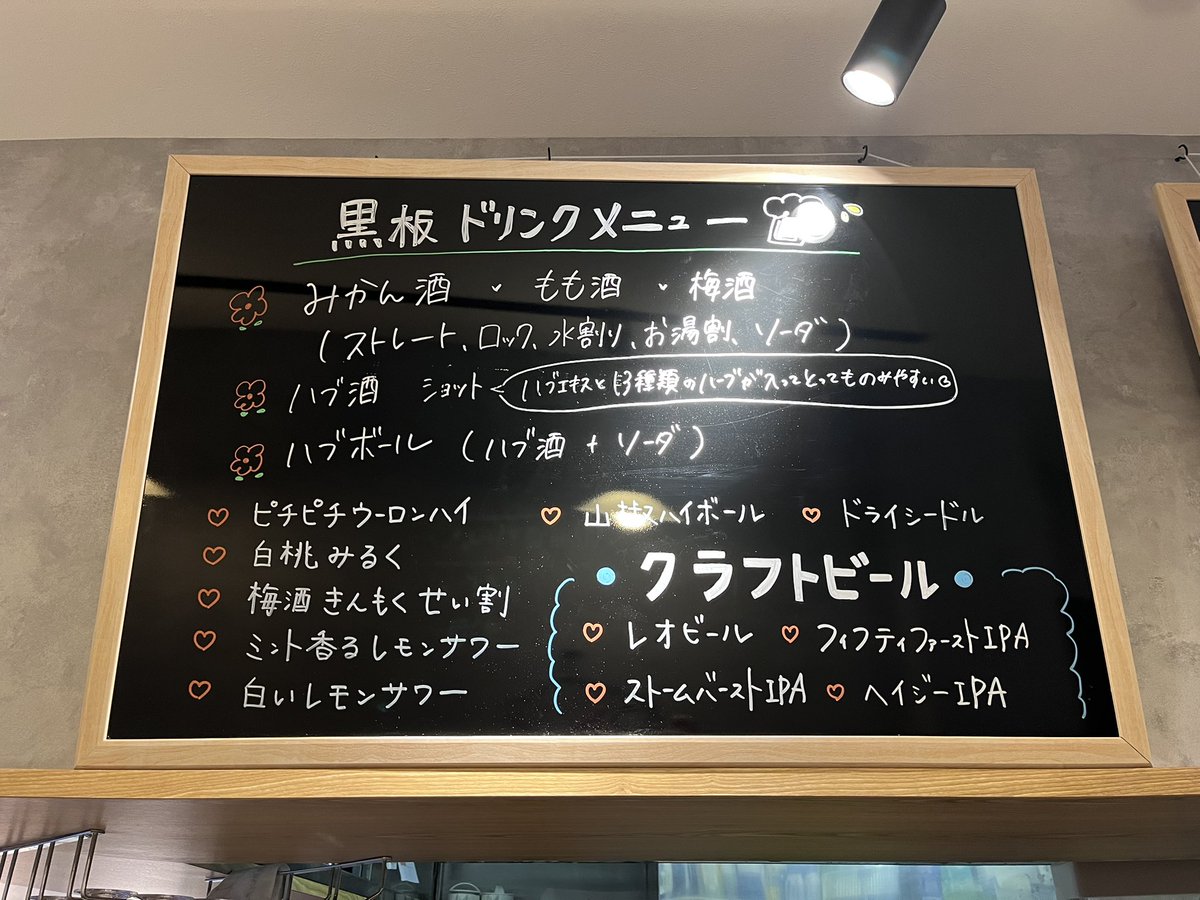 黒板 ドリンクメニュー
みかん酒 、 もも酒 、 梅酒
(ストレート、ロック、水割り、お湯割、ソーダ)
ハブ酒 ショット ハブエキスと13種類のハーブが入ってとってものみやすい
ハブボール (ハブ酒 + ソーダ)
ピチピチウーロンハイ
山椒ハイボール
ドライシードル
白桃みるく
梅酒きんもくせい割
ミント香るレモンサワー
白いレモンサワー
クラフトビール
レオビール
フィフティファーストIPA
ストームバーストIPA
ヘイジーIPA